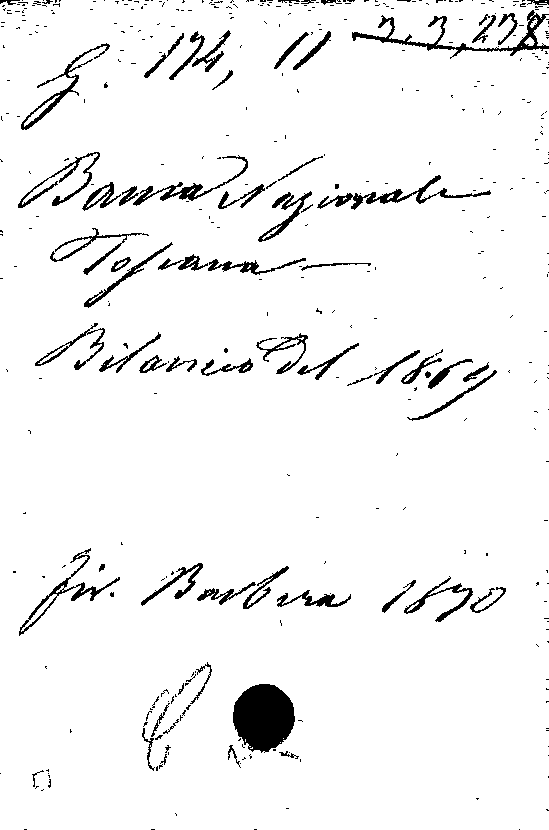 G. 174, 11 3.3,238
Banca Nazionale
Toscana —
Bilancio del 1869
Fir. Barbera 1870